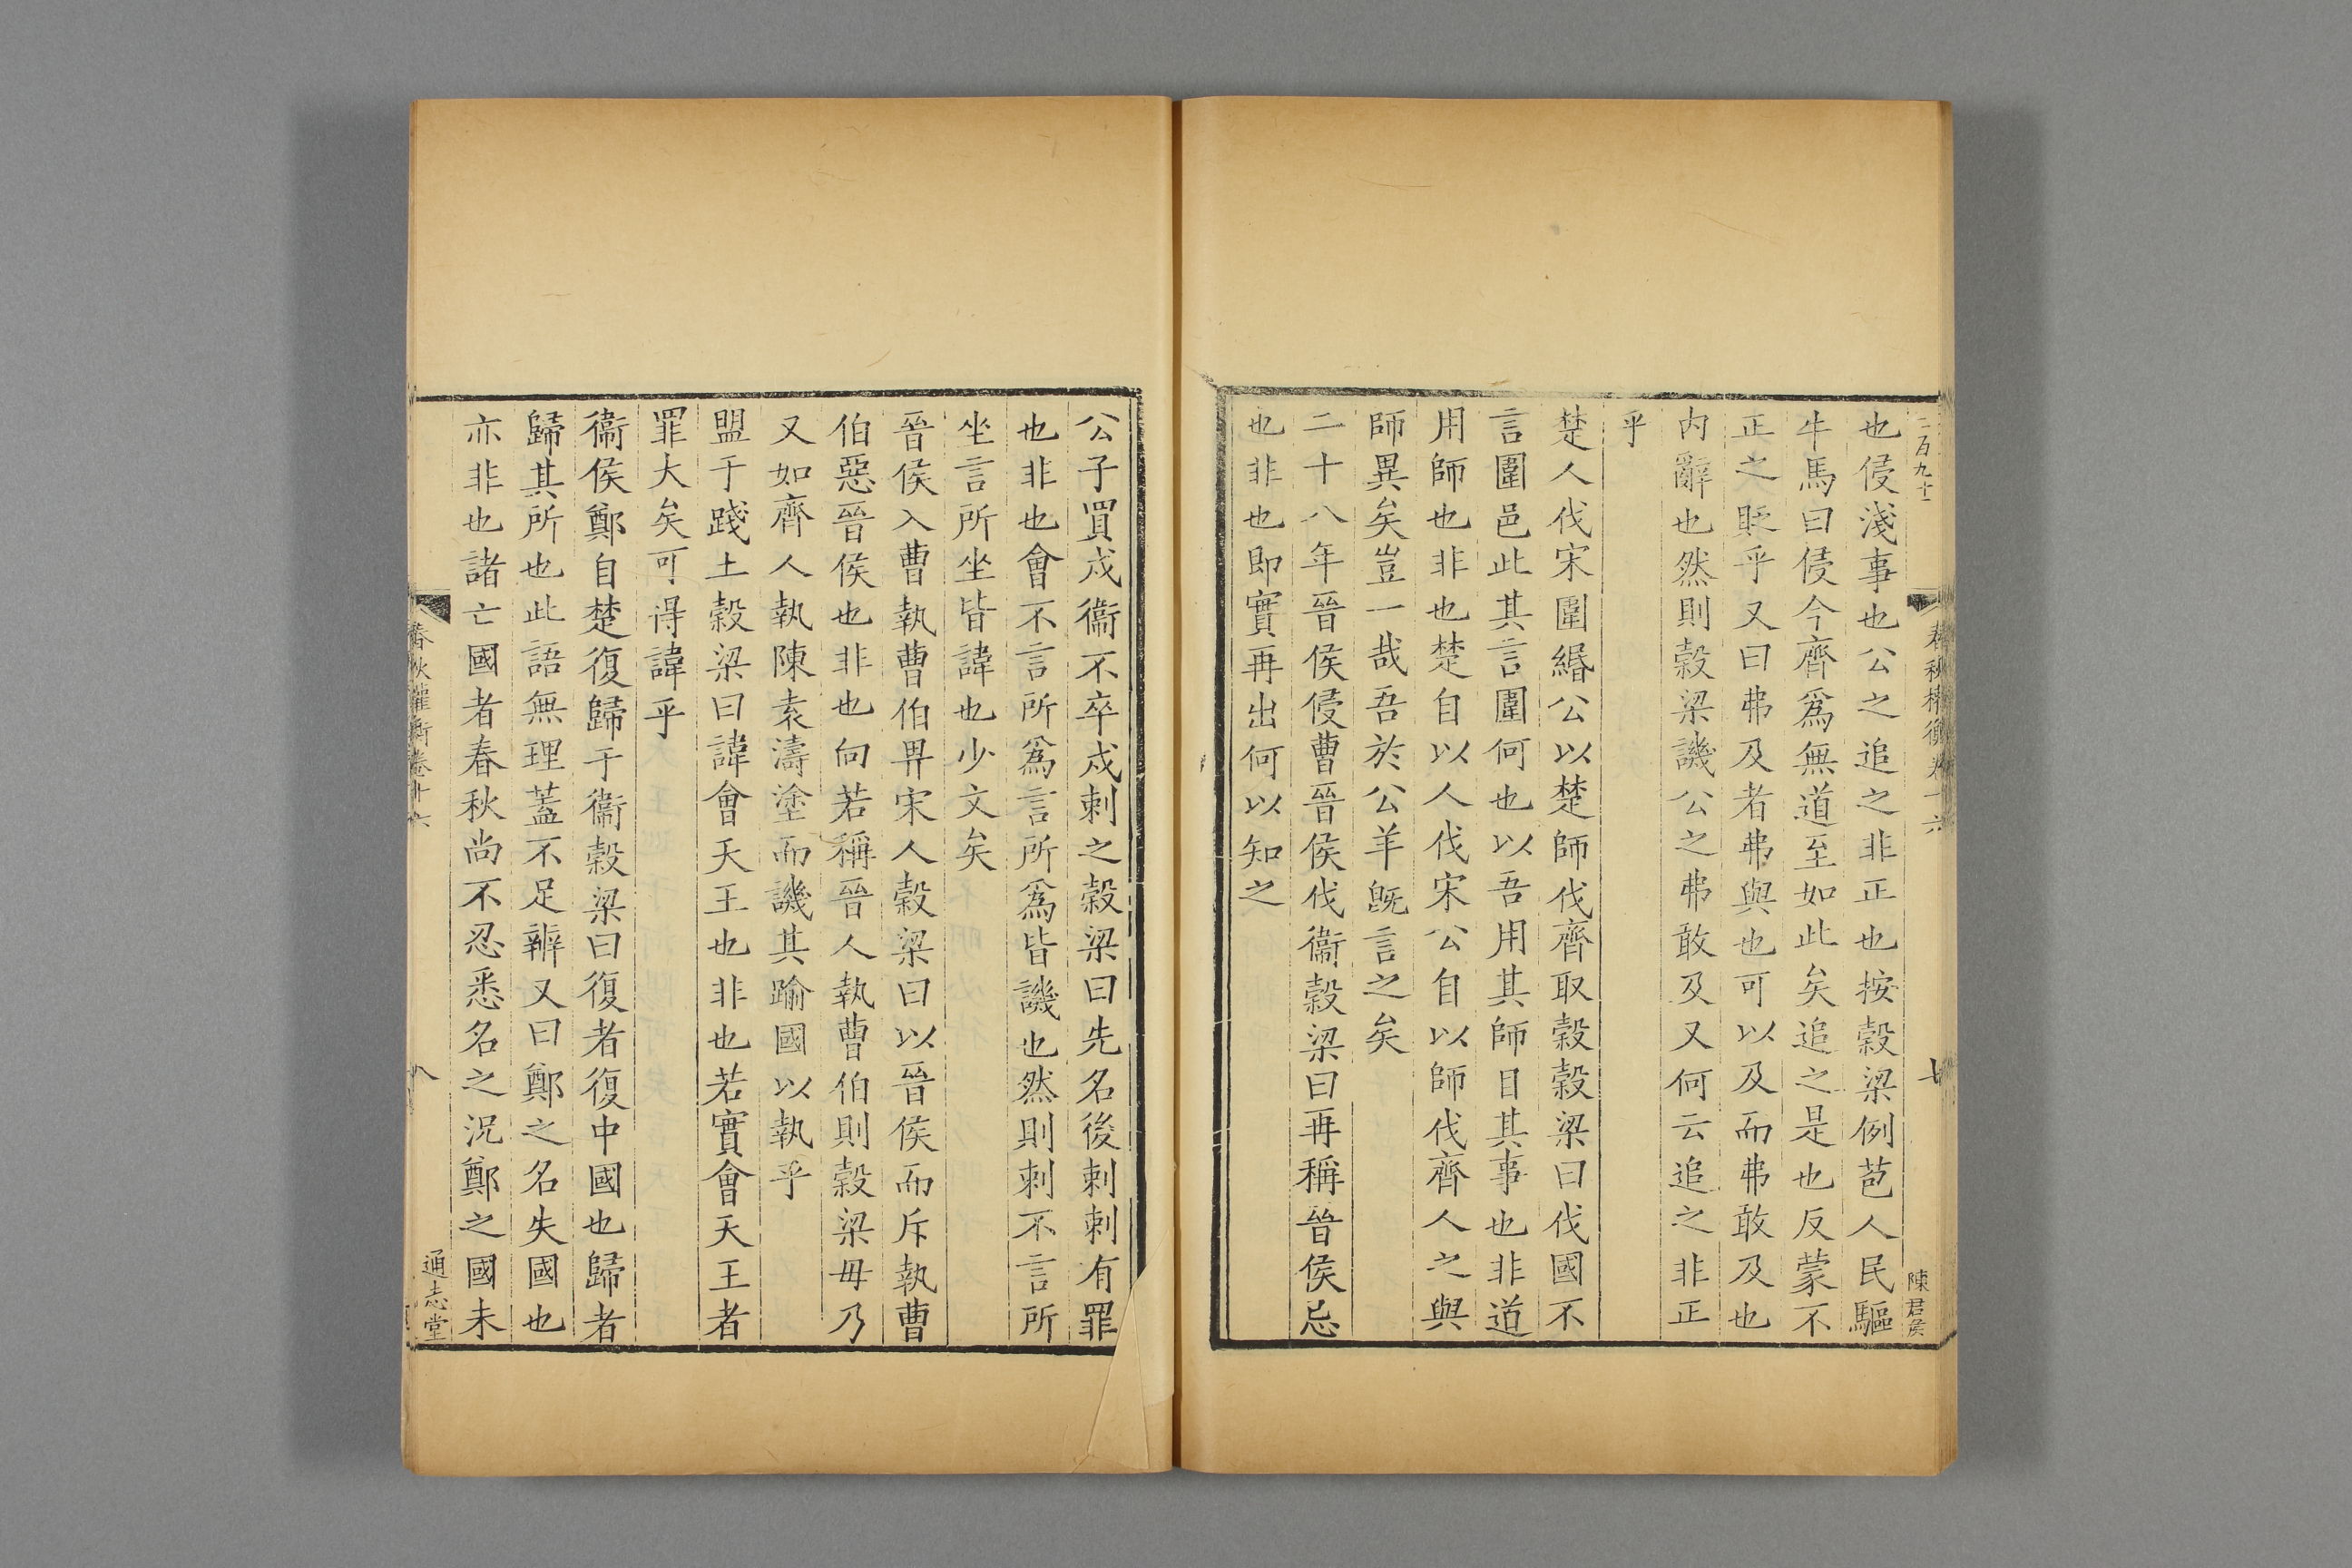 二百九十一
春秋權衡卷十六
七
陳君侯
也侵淺事也公之追之非正也按榖梁例苞人民驅
牛馬曰侵今齊爲無道至如此矣追之是也反蒙不
正之貶乎又曰弗及者弗與也可以及而弗敢及也
内辭也然則榖梁譏公之弗敢及又何云追之非正
乎
楚人伐宋圍緡公以楚師伐齊取榖榖梁曰伐國不
言圍邑此其言圍何也以吾用其師目其事也非道
用師也非也楚自以人伐宋公自以師伐齊人之與
師異矣豈一哉吾於公羊旣言之矣
二十八年晉侯侵曹晉侯伐衞榖梁曰再稱晉侯忌
也非也即實再出何以知之
公子買戍衞不卒戍刺之榖梁曰先名後刺刺有罪
也非也會不言所爲言所爲皆譏也然則刺不言所
坐言所坐皆諱也少文矣
晉侯入曹執曹伯畀宋人榖梁曰以晉侯而斥執曹
伯惡晉侯也非也向若稱晉人執曹伯則榖梁毋乃
又如齊人執陳袁濤塗而譏其踰國以執乎
盟于踐土榖梁曰諱會天王也非也若實會天王者
罪大矣可得諱乎
衞侯鄭自楚復歸于衞榖梁曰復者復中國也歸者
歸其所也此語無理蓋不足辨又曰鄭之名失國也
亦非也諸亡國者春秋尚不忍悉名之況鄭之國未
春秋權衡卷十六
八
通志堂